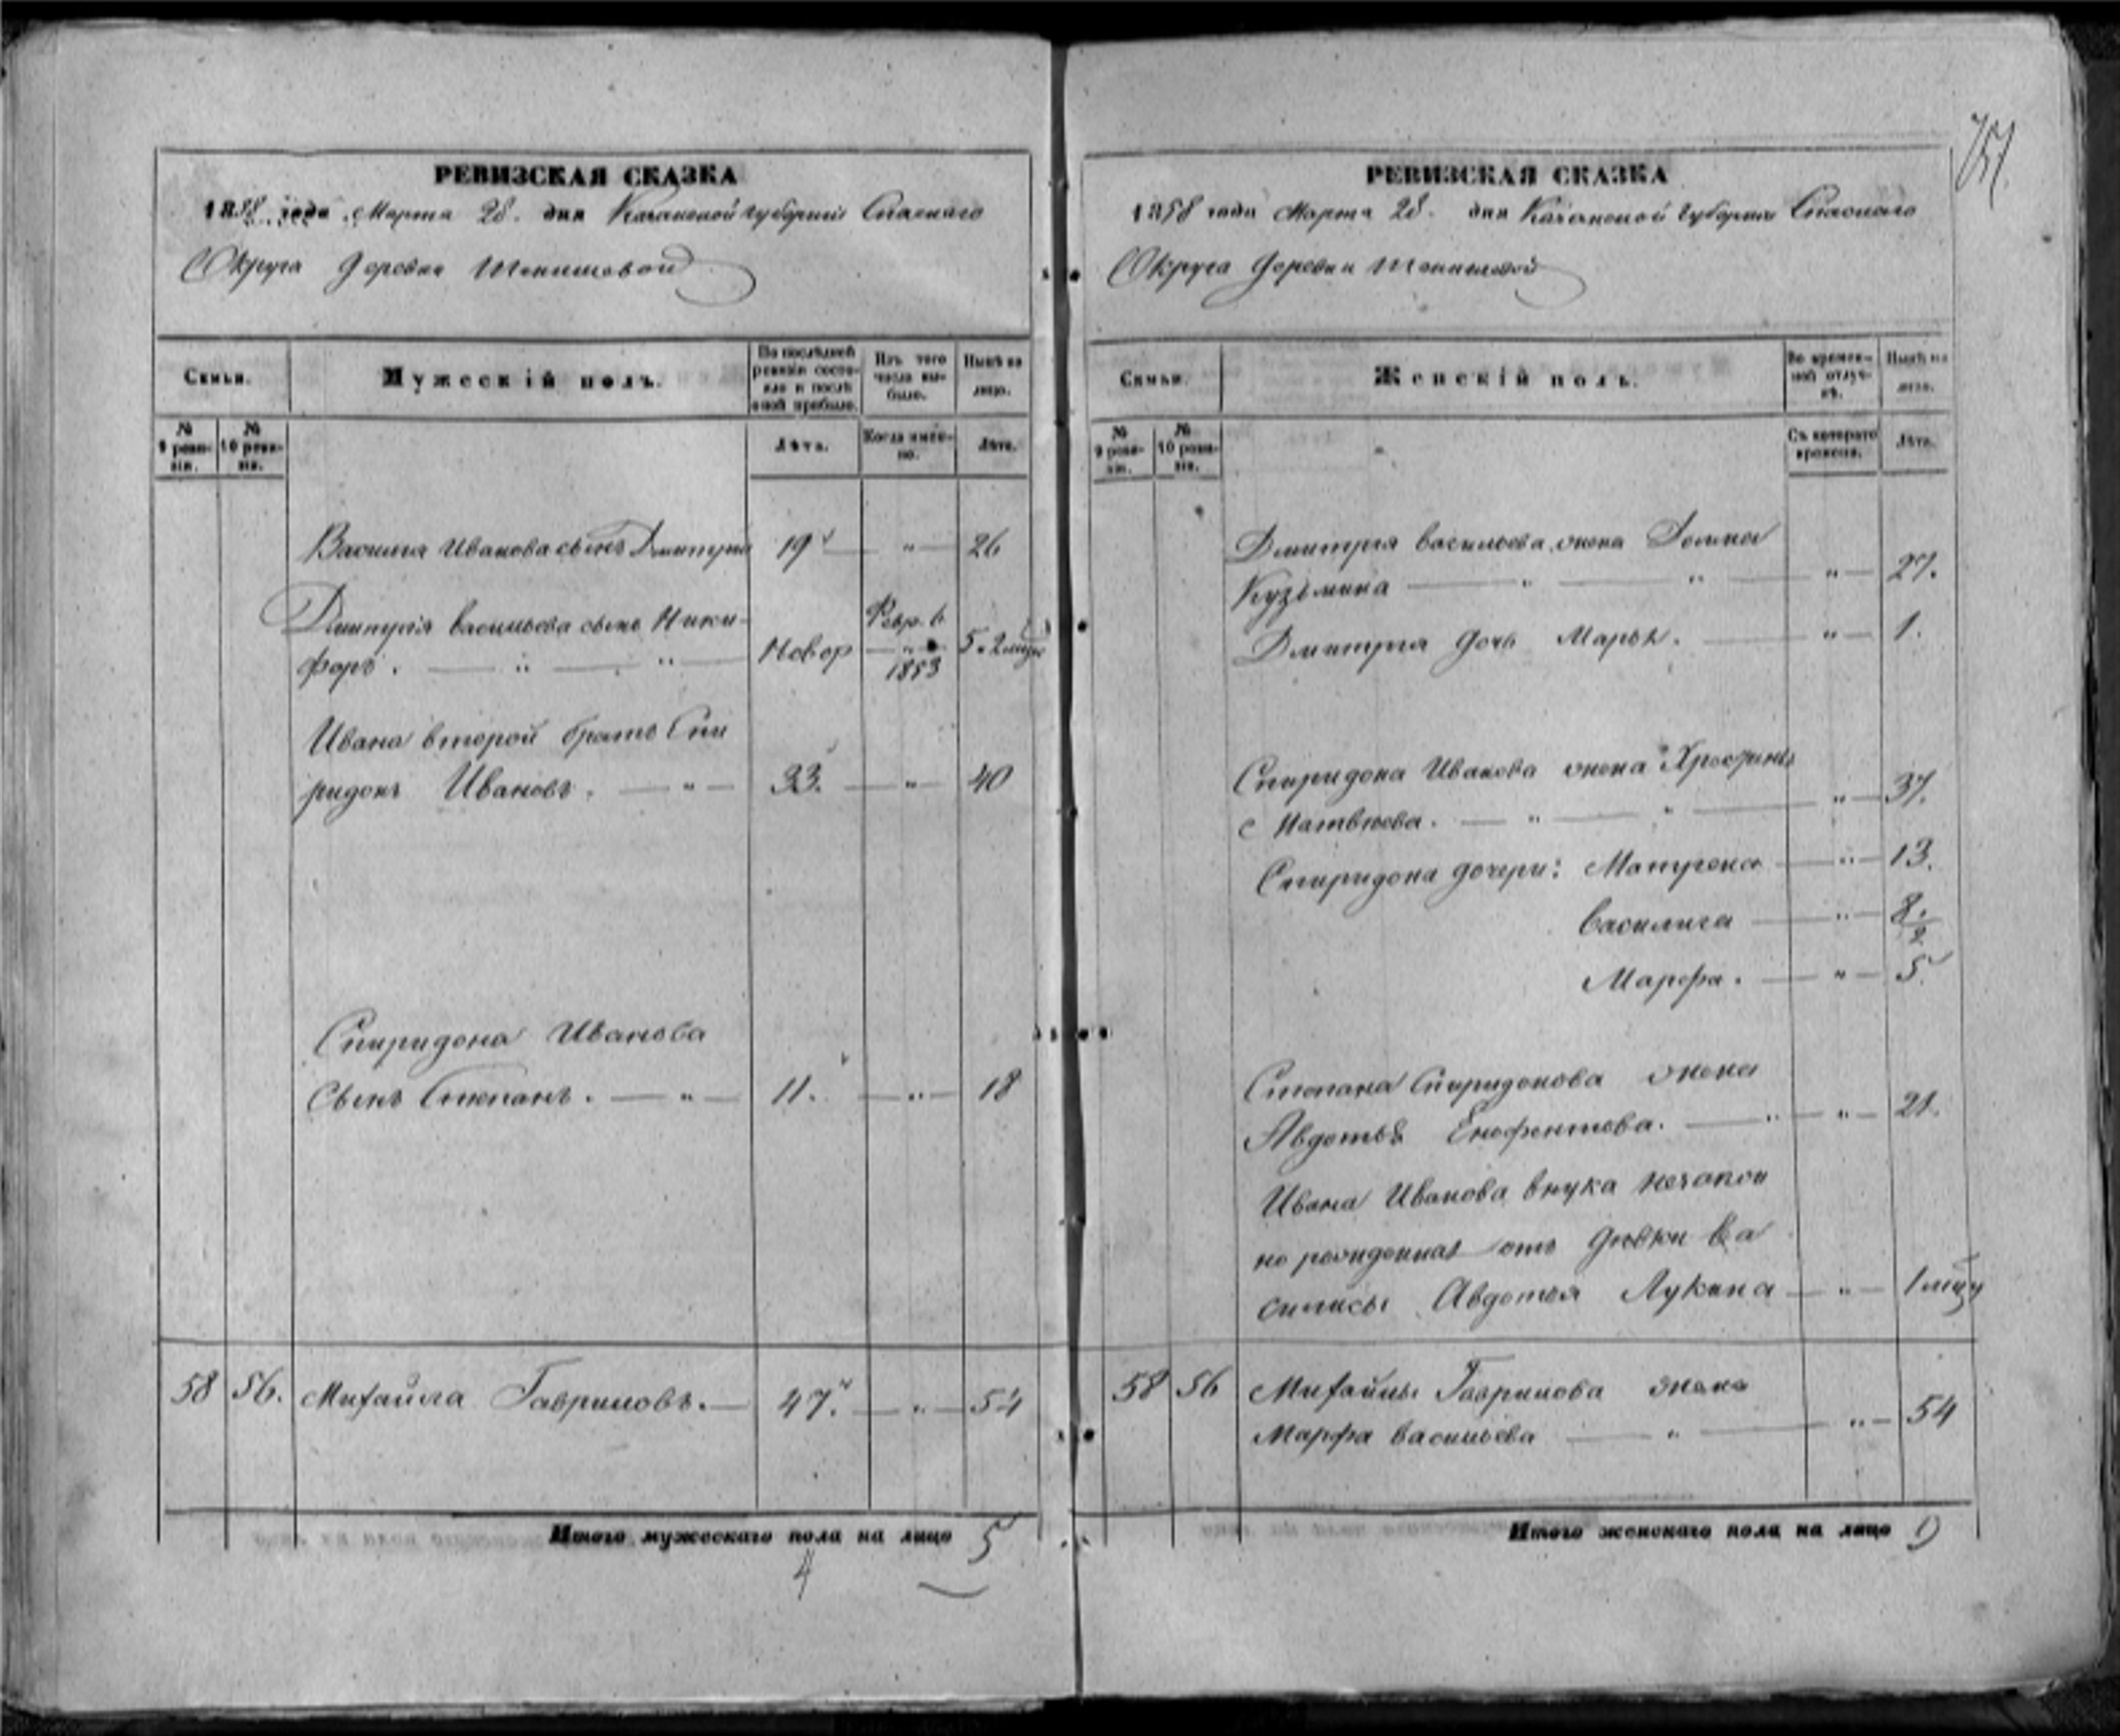 РЕВИЗСКАЯ СКАЗКА
1858 года Марта 28. дня Казанской губернии Спаского
Округа деревни
Семьи.
Мужескій полъ.
По послѣдней ревизіи состояло и послѣ оной прибыло.
Изъ того числа выбыло.
Нынѣ на лицо.
№ 9 ревизіи.
№ 10 ревизіи.
Лѣта.
Когда именно.
Лѣта.
Василия Иванова сынъ Дмитрий 19 — „ — 26
Дмитрія васильева сынъ Ники-
форъ. — „ — „ — Новор Февр. 6 1853 5
Ивана второй братъ Спи
ридонъ Ивановъ. — „ — 33. — „ — 40
Спиридона Иванова
Сынъ Степанъ. — „ — 11. — „ — 18
58 56. Михайла Гавриловъ. — 47. — „ — 54
Итого мужескаго пола на лицо 5
4
РЕВИЗСКАЯ СКАЗКА
1858 года Марта 28. дня Казанской губернии Спаского
Округа деревни
Семьи.
Женскій полъ.
Во временной отлучкѣ.
Нынѣ на лицо.
№ 9 ревизіи.
№ 10 ревизіи.
Съ котораго времени.
Лѣта.
Дмитрия васильева жена
Кузьмина — „ — „ — „ — 27.
Дмитрия дочь Марья. — „ — 1.
Спиридона Иванова жена
Матвѣева. — „ — „ — „ — 37.
Спиридона дочери: Матрена — „ — 13.
Василиса — „ — 8.
Марфа. — „ — 5
Степана Спиридонова жена
Авдотья Енофентева. — „ — „ — 21.
Ивана Иванова внука незакон
но рожденная отъ дѣвки Ва
силисы Авдотья Лукина — „ — 1
58 56 Михайлы Гаврилова жена
Марфа васильева — „ — „ — 54
Итого женскаго пола на лицо 9